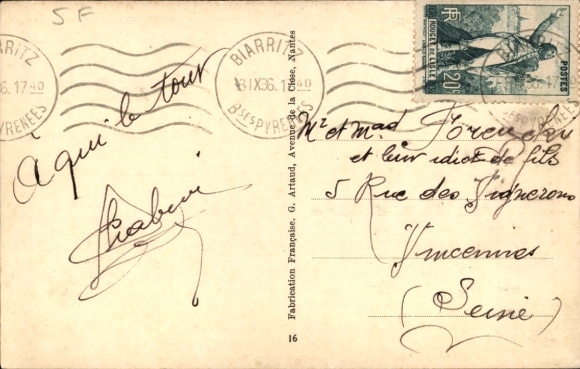 5F
BIARRITZ
36.17 40
PYRENEES
BIARRITZ
IX 36. 17 40
Bses PYRENEES
RF
POSTES
ROUGET DE LISLE
20c
À qui le tour
Mr et Mad
et leur idiot de fils
5 Rue des Vignerons
Vincennes
(Seine)
Fabrication Française. G. Artaud, Avenue de la Close, Nantes
16